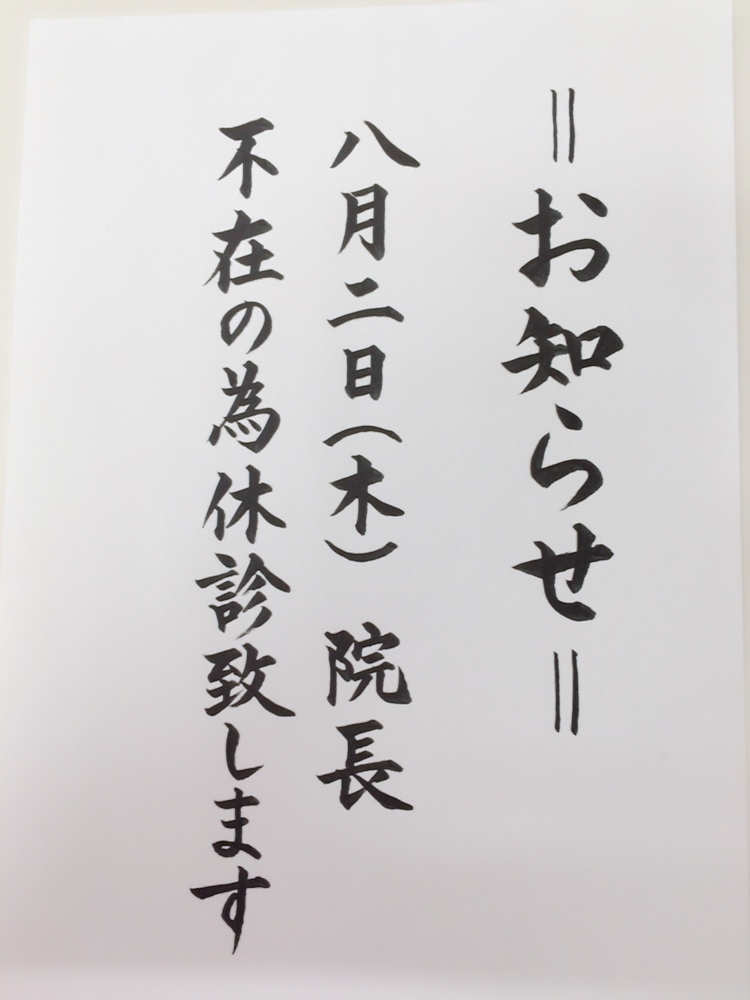 ＝お知らせ＝
八月二日(木)　院長
不在の為休診致します